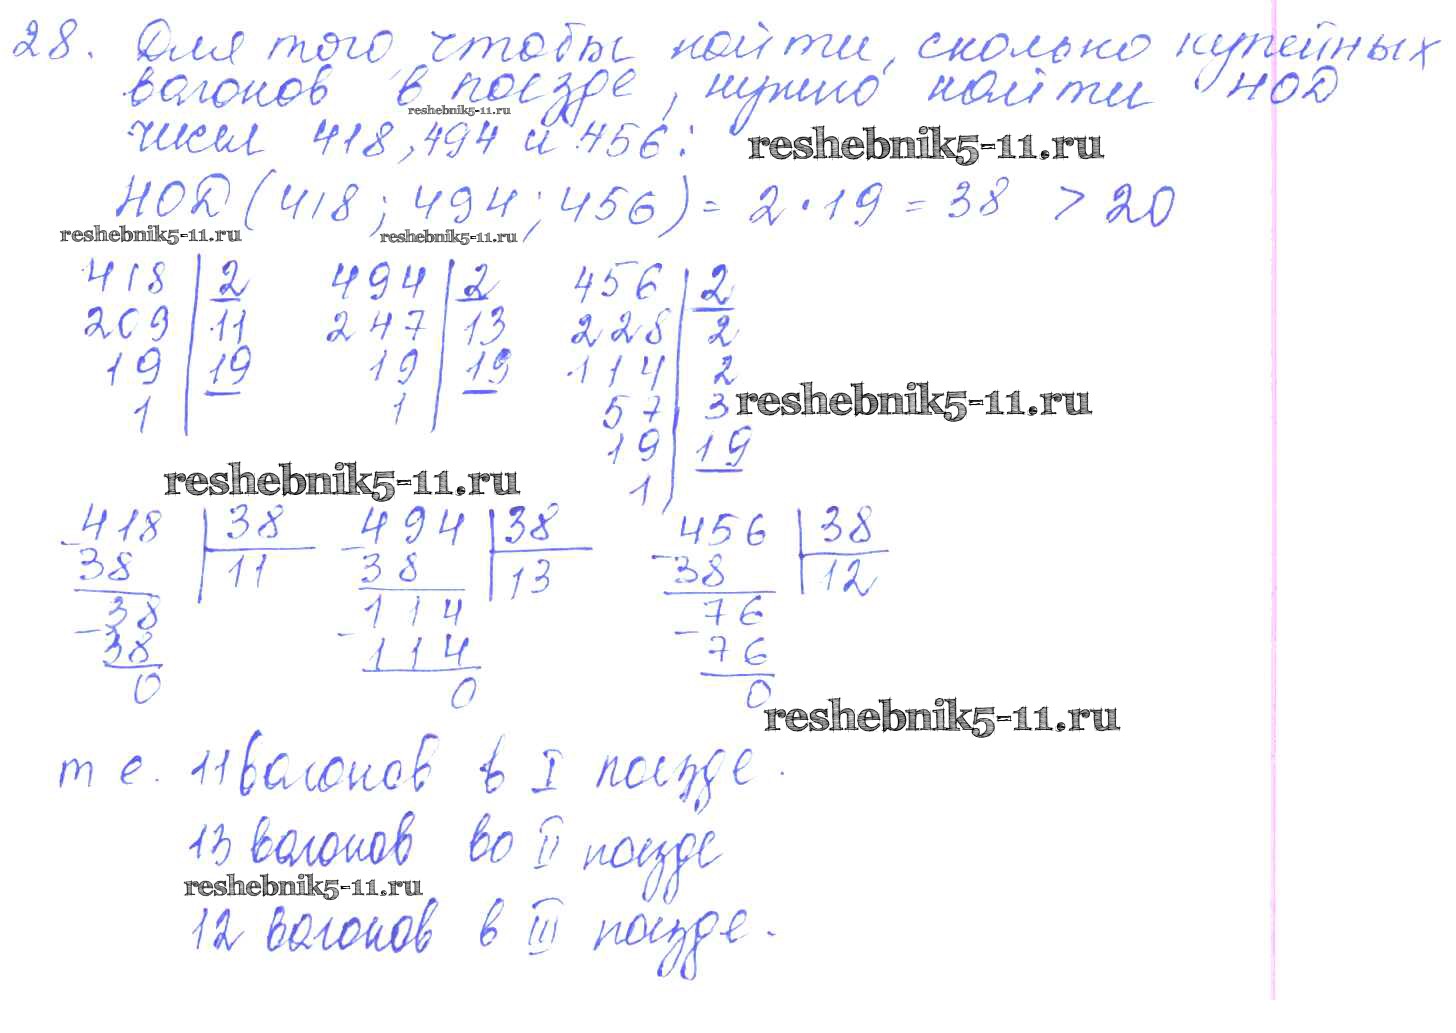 28. Для того, чтобы найти, сколько купейных
вагонов в поезде, нужно найти НОД
reshebnik5-11.ru
чисел 418, 494 и 456:
reshebnik5-11.ru
НОД (418; 494; 456) = 2 · 19 = 38 > 20
reshebnik5-11.ru reshebnik5-11.ru
418 | 2 494 | 2 456 | 2
209 | 11 247 | 13 228 | 2
19 | 19 19 | 19 114 | 2
1 1 57 | 3
reshebnik5-11.ru
19 | 19
1
reshebnik5-11.ru
418 | 38 494 | 38 456 | 38
- 38 11 - 38 13 - 38 12
38 114 76
- 38 - 114 - 76
0 0 0
reshebnik5-11.ru
т е. 11 вагонов в I поезде.
13 вагонов во II поезде
reshebnik5-11.ru
12 вагонов в III поезде.